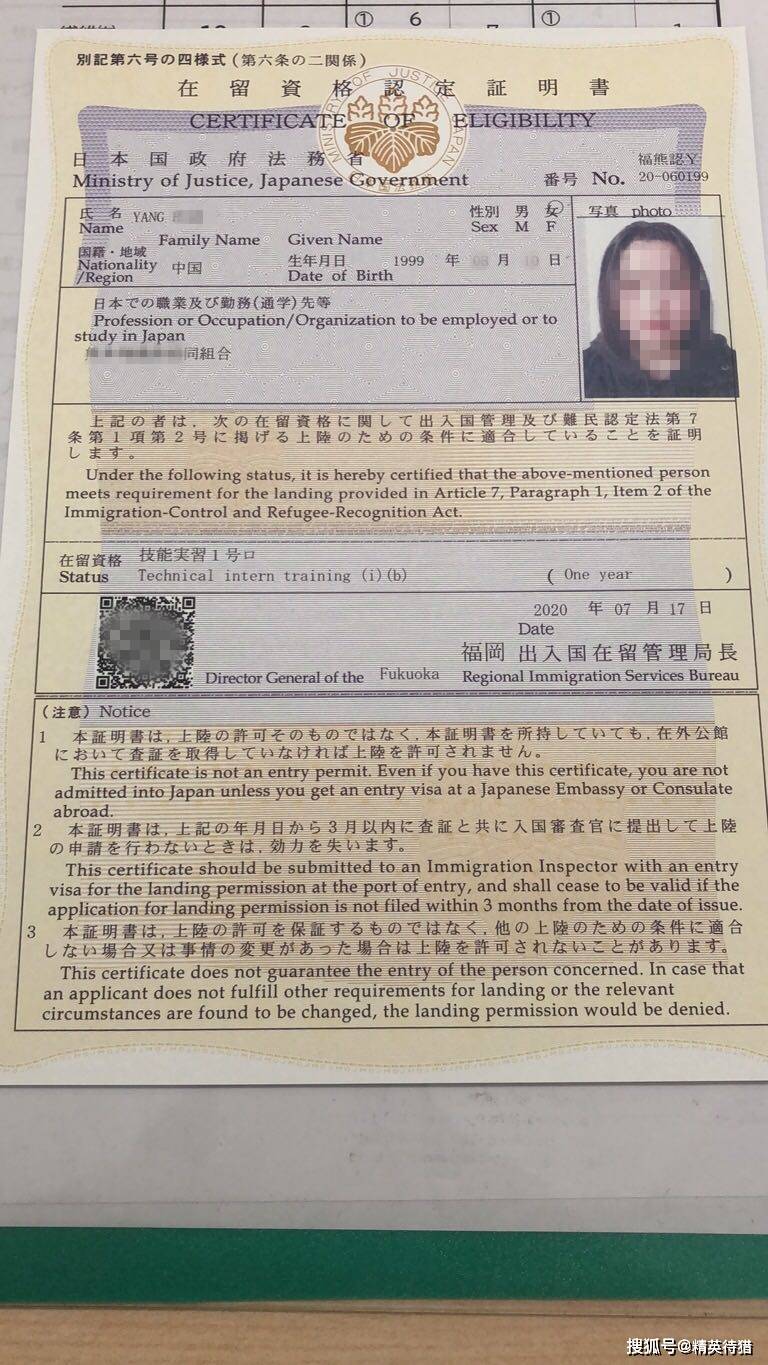 ① 6 ①
別記第六号の四様式(第六条の二関係)
在留資格認定証明書
CERTIFICATE OF ELIGIBILITY
MINISTRY OF JUSTICE JAPAN
日本国政府法務省
福熊認Y
Ministry of Justice, Japanese Government 番号 No. 20-060199
氏名 YANG 性別 男 女 写真 photo
Name Sex M F
Family Name Given Name
国籍・地域 生年月日 1999 年 月 日
Nationality 中国 Date of Birth
/Region
日本での職業及び勤務(通学)先等
Profession or Occupation/Organization to be employed or to
study in Japan
同組合
上記の者は,次の在留資格に関して出入国管理及び難民認定法第7
条第1項第2号に掲げる上陸のための条件に適合していることを証明
します。
Under the following status, it is hereby certified that the above-mentioned person
meets requirement for the landing provided in Article 7, Paragraph 1, Item 2 of the
Immigration-Control and Refugee-Recognition Act.
在留資格 技能実習1号ロ
Status Technical intern training (i)(b) ( One year )
2020 年 07 月 17 日
Date
福岡 出入国在留管理局長
Director General of the Fukuoka Regional Immigration Services Bureau
(注意) Notice
1 本証明書は,上陸の許可そのものではなく,本証明書を所持していても,在外公館
において査証を取得していなければ上陸を許可されません。
This certificate is not an entry permit. Even if you have this certificate, you are not
admitted into Japan unless you get an entry visa at a Japanese Embassy or Consulate
abroad.
2 本証明書は,上記の年月日から3月以内に査証と共に入国審査官に提出して上陸
の申請を行わないときは,効力を失います。
This certificate should be submitted to an Immigration Inspector with an entry
visa for the landing permission at the port of entry, and shall cease to be valid if the
application for landing permission is not filed within 3 months from the date of issue.
3 本証明書は,上陸の許可を保証するものではなく,他の上陸のための条件に適合
しない場合又は事情の変更があった場合は上陸を許可されないことがあります。
This certificate does not guarantee the entry of the person concerned. In case that
an applicant does not fulfill other requirements for landing or the relevant
circumstances are found to be changed, the landing permission would be denied.
搜狐号@精英待猎